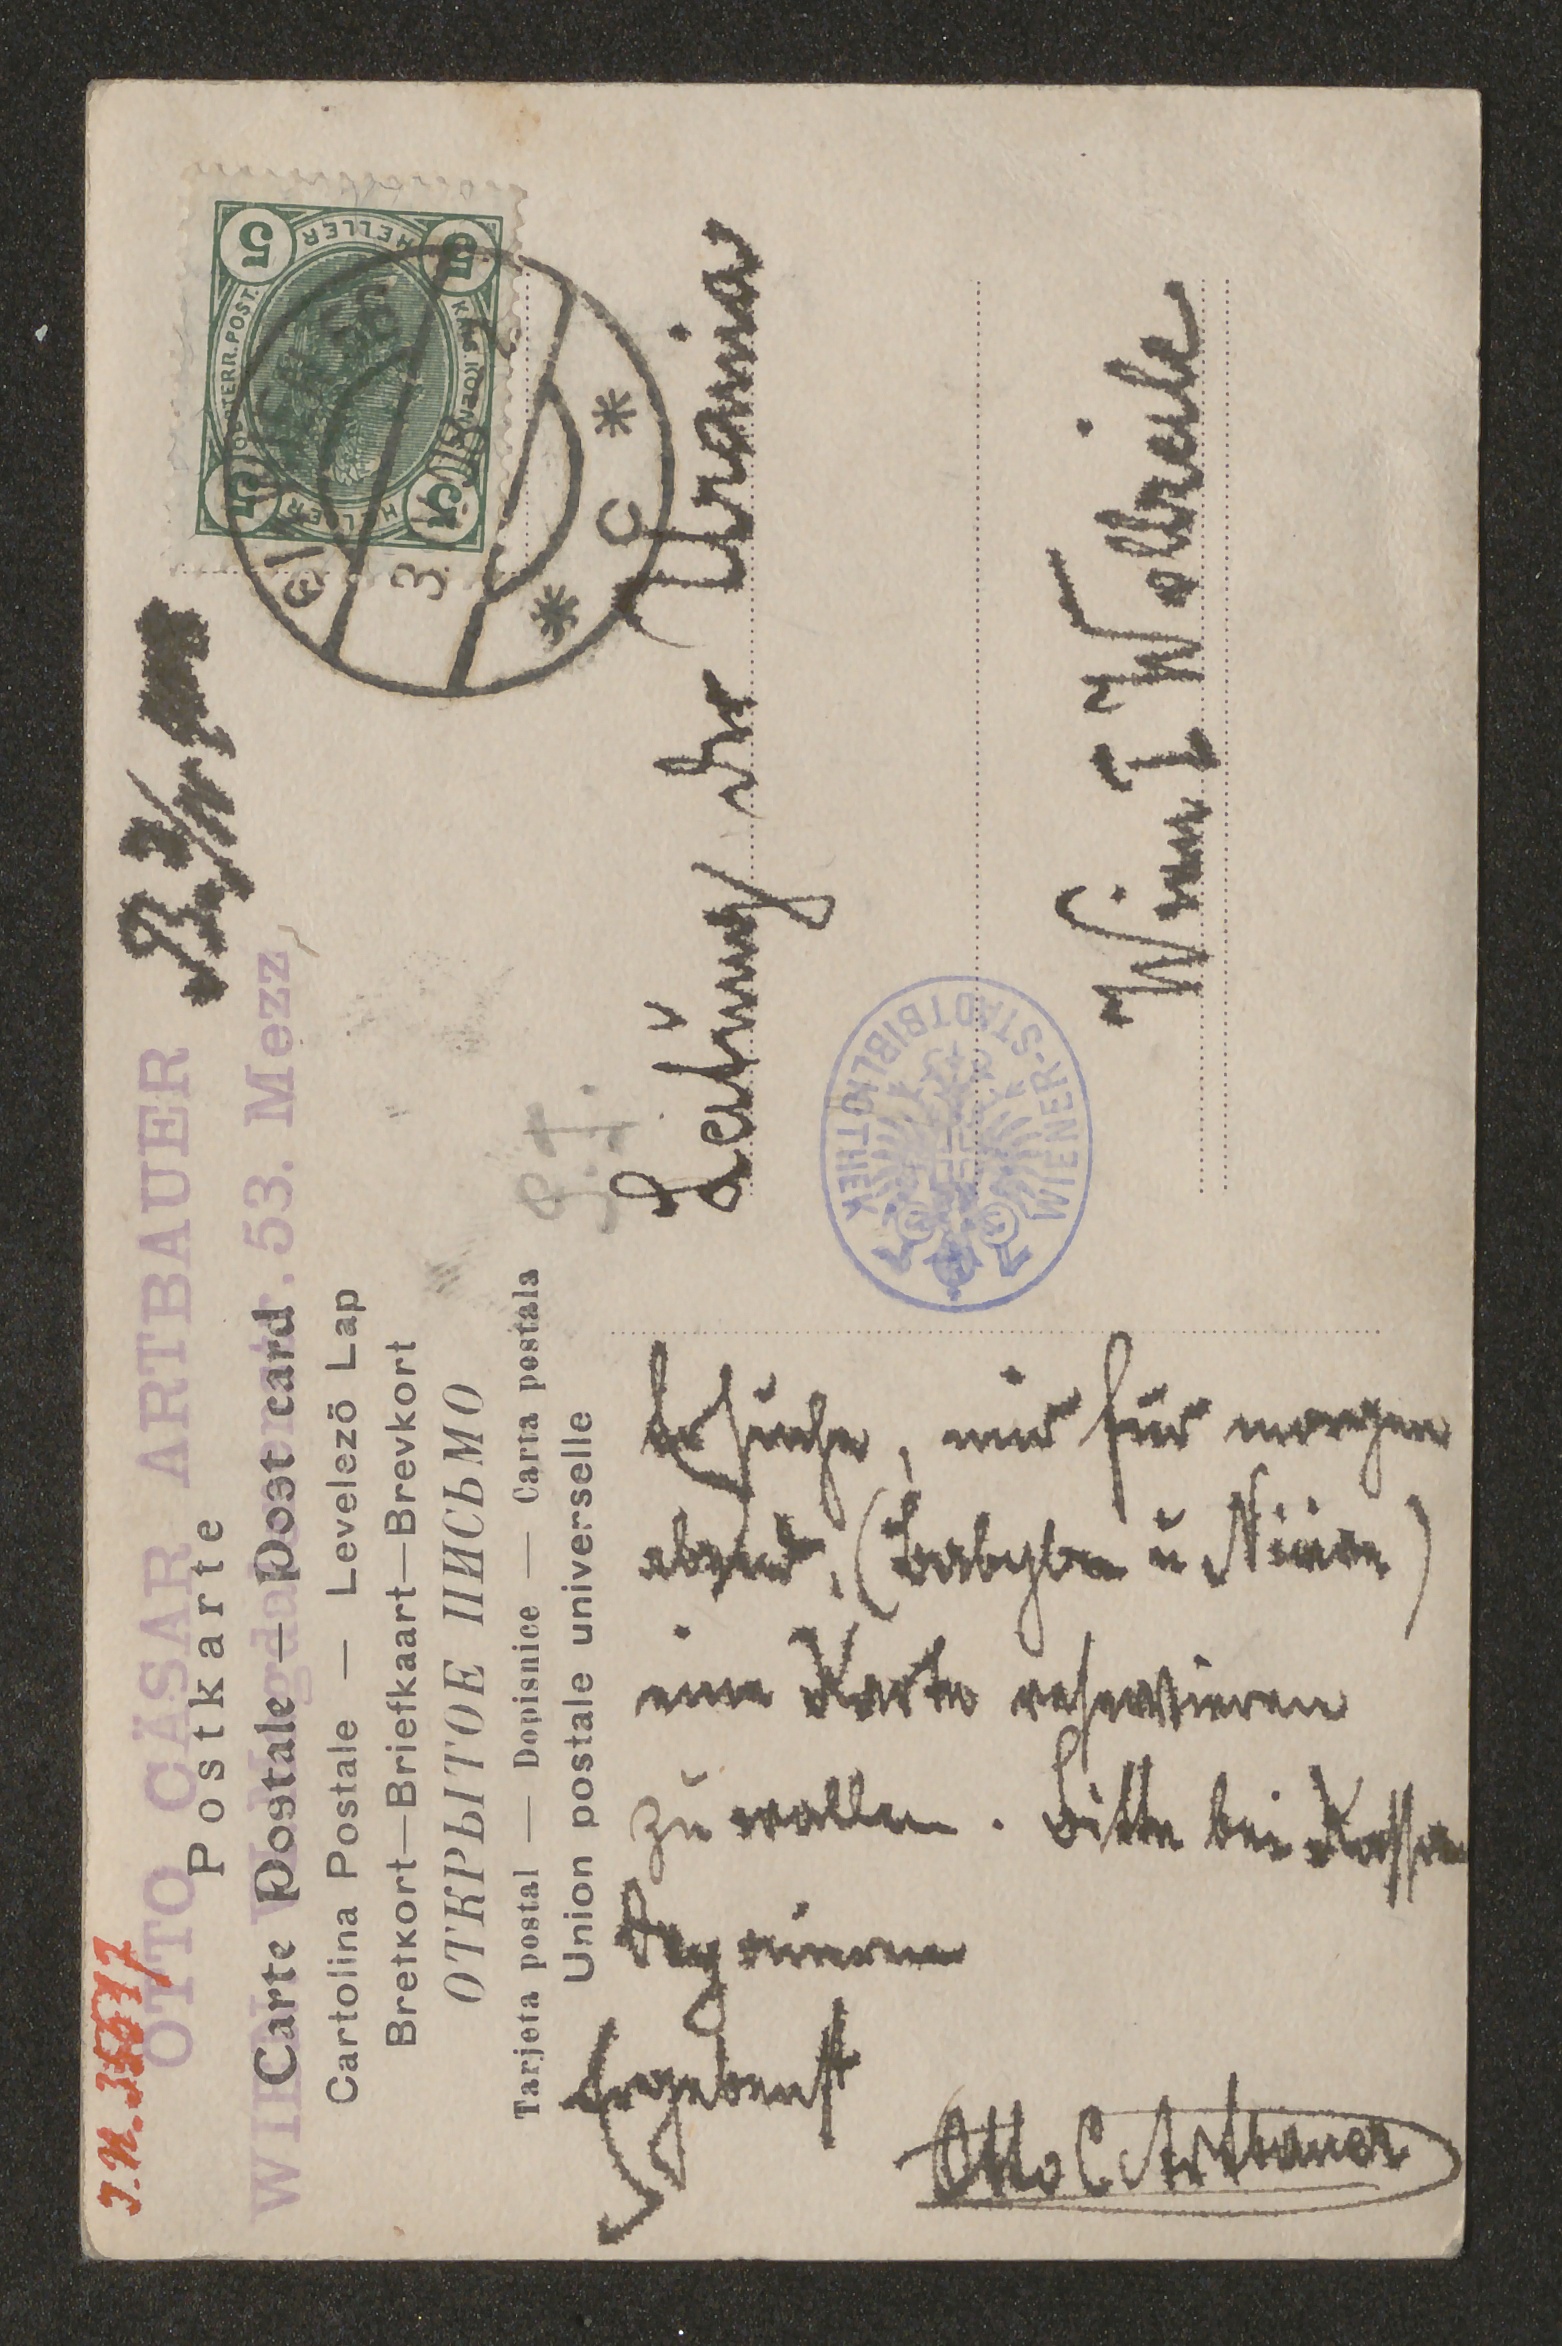 J.N. 35617
OTTO CÄSAR ARTBAUER
WIEN
53. Mezz
Postkarte
Carte postale — post card
Cartolina Postale — Levelező Lap
Bretkort—Briefkaart—Brevkort
ОТКРЫТОЕ ПИСЬМО
Tarjeta postal — Dopisnice — Carta postala
Union postale universelle
5 HELLER 5
Leitung der Urania
Wien I Wollzeile
WIENER-STADTBIBLIOTHEK
Ersuche, mir für morgen
abend, (Babylon u Ninive)
eine Karte reservieren
zu wollen. Bitte bei Kasse
Ergebenst
Otto C Artbauer